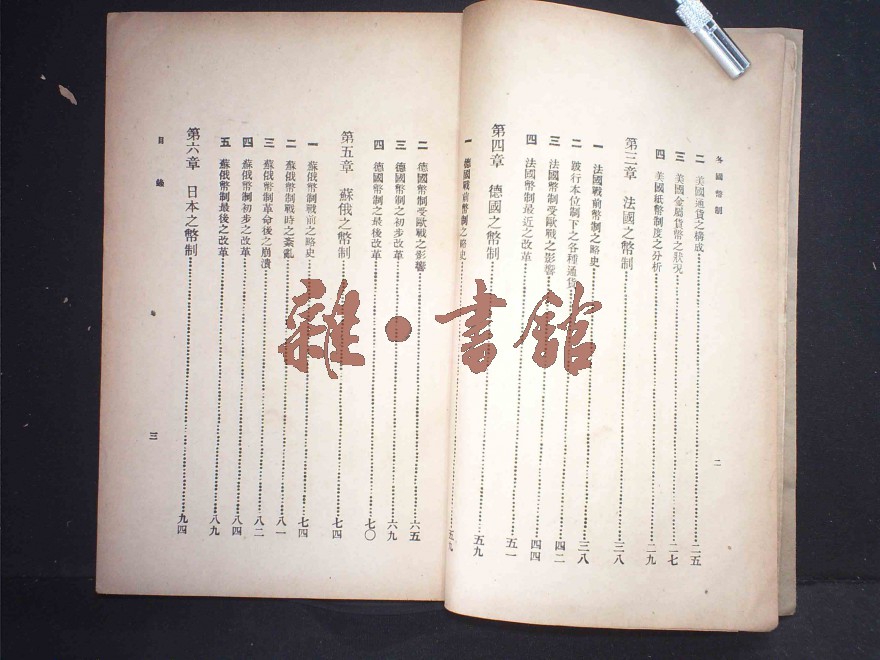 各國幣制
二
二 美國通貨之構成 二五
三 美國金屬貨幣之狀況 二七
四 美國紙幣制度之分析 二九
第三章 法國之幣制 三八
一 法國戰前幣制之略史 三八
二 跛行本位制下之各種通貨 四二
三 法國幣制受歐戰之影響 四四
四 法國幣制最近之改革 五一
第四章 德國之幣制 五九
一 德國戰前幣制之略史 五九
二 德國幣制受歐戰之影響 六五
三 德國幣制之初步改革 六九
四 德國幣制之最後改革 七〇
第五章 蘇俄之幣制 七四
一 蘇俄幣制戰前之略史 七四
二 蘇俄幣制戰時之紊亂 八一
三 蘇俄幣制革命後之崩潰 八二
四 蘇俄幣制初步之改革 八四
五 蘇俄幣制最後之改革 八九
第六章 日本之幣制 九四
目錄
三
雜·書館